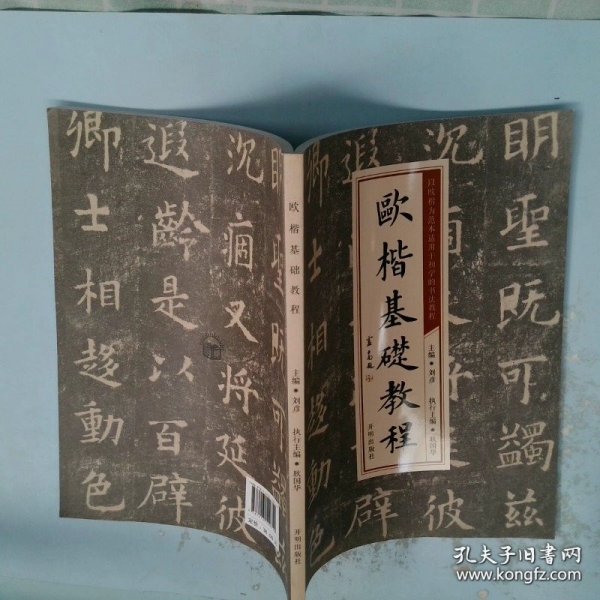 歐楷基礎教程
以欧楷为范本适用于初学的书法教程
主编 刘彦
执行主编 耿国华
开明出版社
欧楷基础教程
主编 刘彦
执行主编 耿国华
开明出版社
明聖既可蠲兹
沉痼又将延彼
遐齡是以百辟
卿士相趍動色
孔夫子旧书网
www.kongfz.com